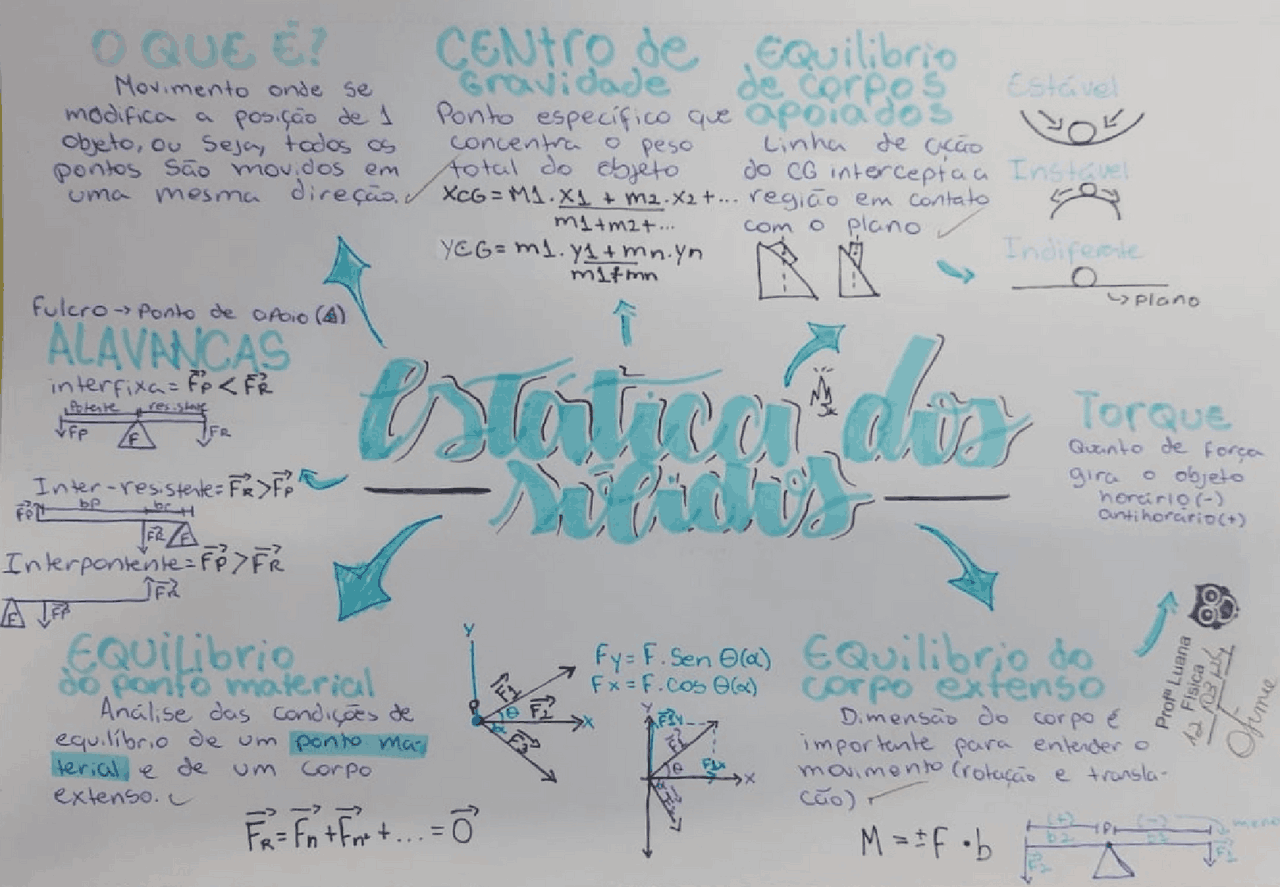 O QUE É?
Movimento onde se
modifica a posição de 1
objeto, ou seja, todos os
pontos são movidos em
uma mesma direção.
CENTRO de
Gravidade
Ponto específico que
concentra o peso
total do objeto
XCG = M1 . X1 + m2 . X2 + ...
m1 + m2 + ...
YCG = m1 . y1 + mn . yn
m1 + mn
EQUILIBRIO
de corpos
apoiados
Linha de ação
do CG intercepta a
região em contato
com o plano
Estável
Instável
Indiferente
↳ plano
Fulcro → Ponto de apoio (△)
ALAVANCAS
interfixa = F⃗P < F⃗R
Potente resistente
F⃗P F F⃗R
Inter-resistente = F⃗R > F⃗P
bp br
F⃗P F⃗R F
Interpontente = F⃗P > F⃗R
F⃗R
F F⃗P
Estática dos
sólidos
TORQUE
Quanto de força
gira o objeto
horário (-)
antihorário (+)
EQUILIBRIO
do ponto material
Análise das condições de
equilíbrio de um ponto ma-
terial e de um corpo
extenso.
F⃗R = F⃗n + F⃗n + ... = 0⃗
Y
F⃗1
P θ F⃗2 X
α F⃗3
Fy = F . Sen θ(α)
Fx = F . cos θ(α)
Y
F1y
F⃗1
θ F1x X
EQUILIBRIO do
corpo extenso
Dimensão do corpo é
importante para entender o
movimento (rotação e transla-
ção)
M = ± F • b
(+) P (-)
b2 b1
F⃗2 F⃗1
Profª Luana
Física